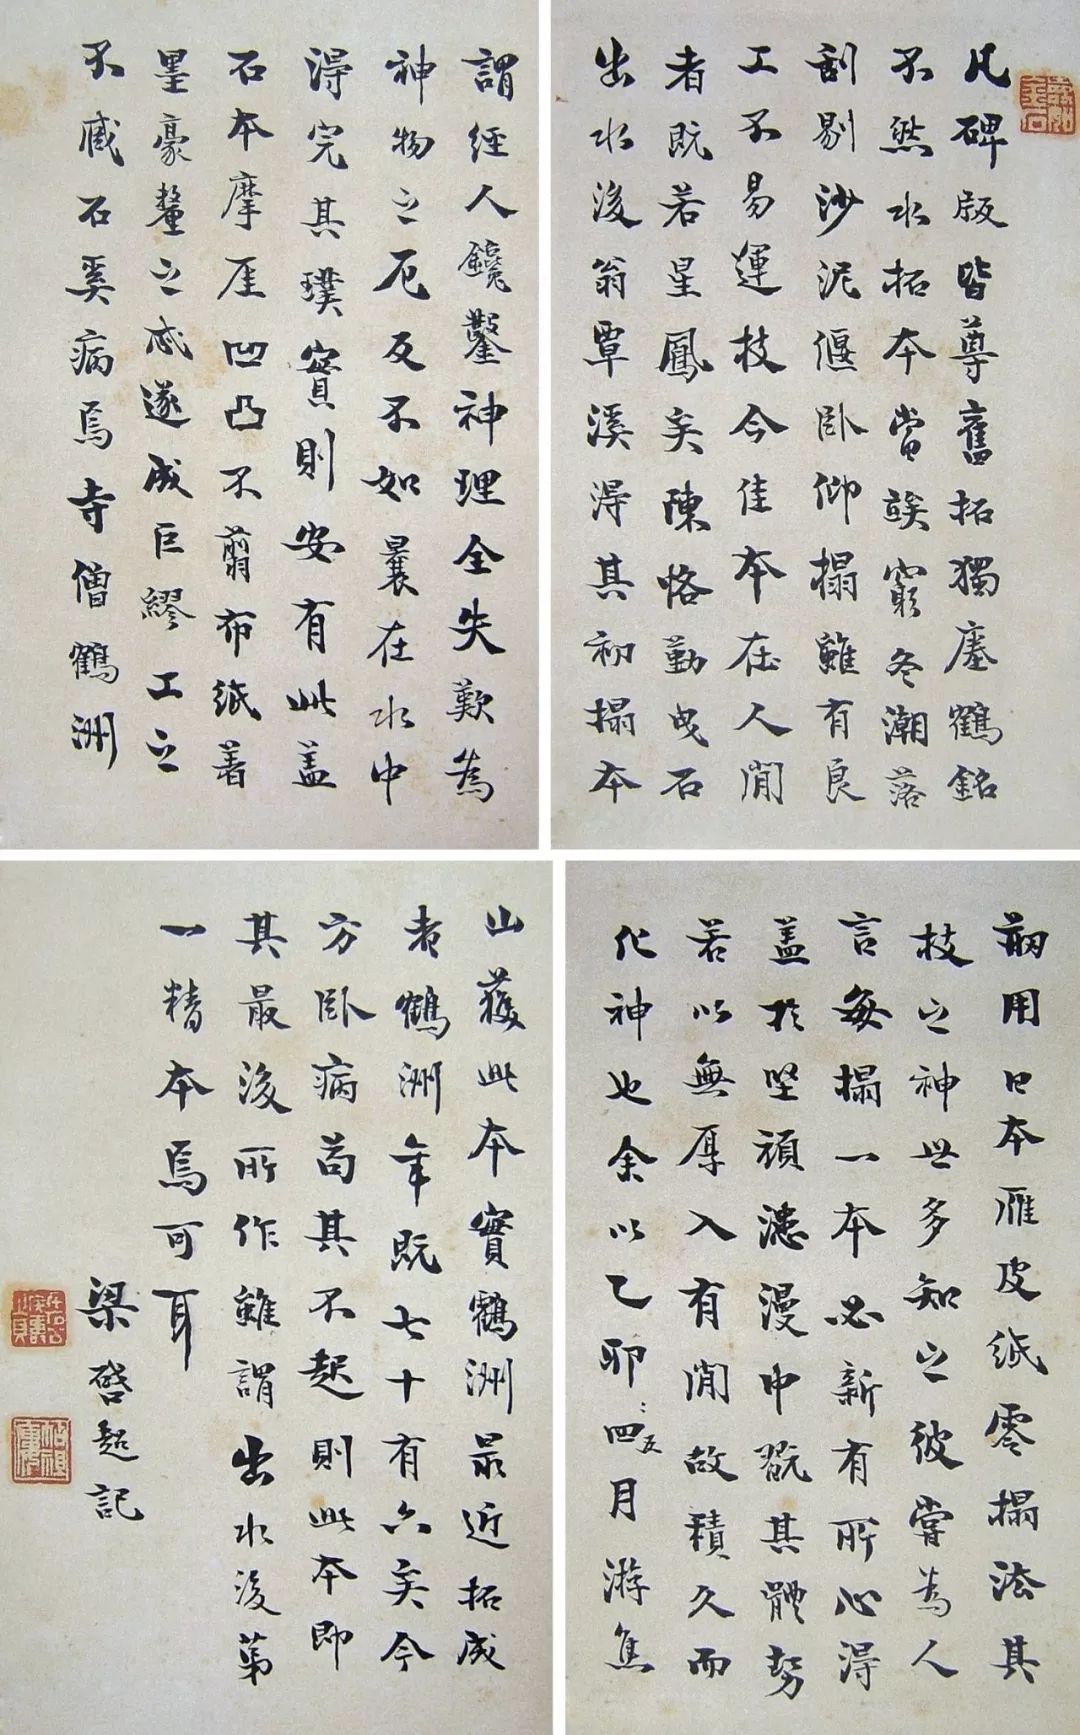 凡碑版皆尊舊拓獨瘞鶴銘
不然水拓本當竢窮冬潮落
刮剔沙泥偃臥仰搨雖有良
工不易運技今佳本在人間
者既若星鳳矣陳恪勤曳石
出水後翁覃溪得其初搨本
謂經人鑱鑿神理全失歎為
神物之厄反不如曩在水中
得完其璞實則安有此蓋
石本摩厓凹凸不翦布紙著
墨豪釐之忒遂成巨繆工之
不臧石奚病焉寺僧鶴洲
刱用日本雁皮紙零搨法其
技之神世多知之彼嘗為人
言每搨一本必新有所心得
蓋於堅頑漶漫中翫其體勢
若以無厚入有閒故積久而
化神也余以乙卯四五月游焦
山獲此本實鶴洲最近拓成
者鶴洲年既七十有六矣今
方臥病苟其不起則此本即
其最後所作雖謂出水後第
一精本焉可耳
梁啓超記